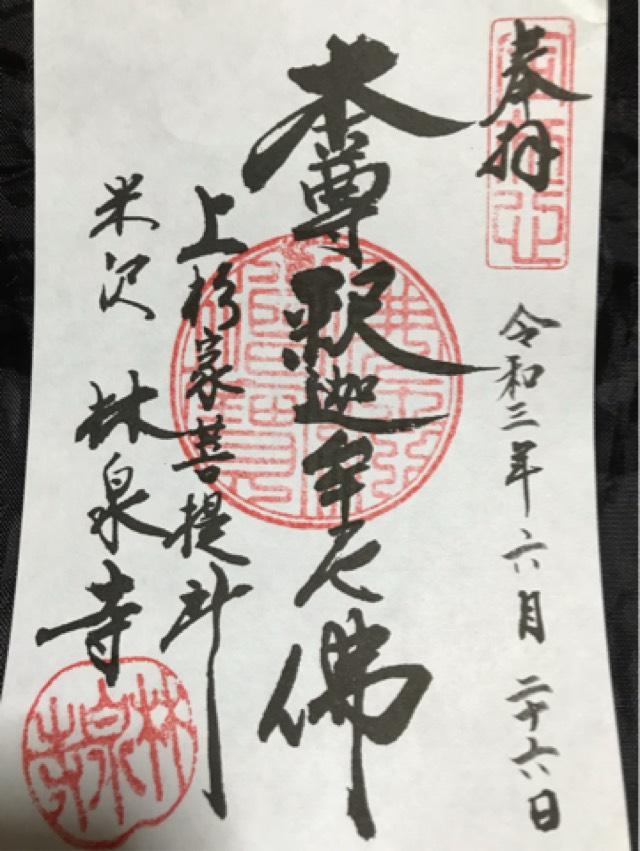 奉拝
令和三年六月二十六日
本尊釈迦牟尼佛
上杉家菩提所
米沢 林泉寺
林泉寺